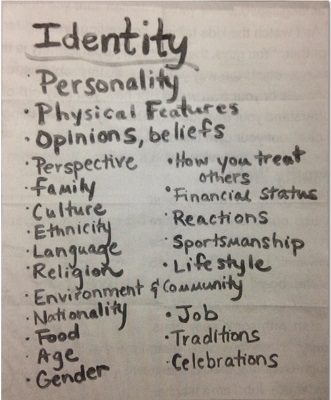 Identity
· Personality
· Physical Features
· Opinions, beliefs
· Perspective
· Family
· Culture
· Ethnicity
· Language
· Religion
· Environment & Community
· Nationality
· Food
· Age
· Gender
· How you treat
others
· Financial Status
· Reactions
· Sportsmanship
· Lifestyle
· Job
· Traditions
· Celebrations